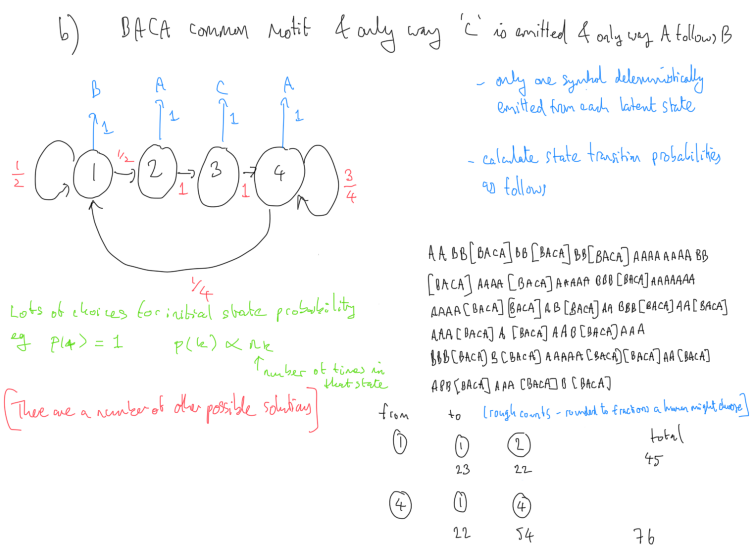 b) BACA common motif & only way 'C' is emitted & only way A follows B
- only one symbol deterministically
emitted from each latent state
- calculate state transition probabilities
as follows
B A C A
1 1 1 1
1/2 1 1/2 2 1 3 1 4 3/4
1/4
Lots of choices for initial state probability
eg p(4) = 1 p(k) ∝ nk
number of times in
that state
[There are a number of other possible solutions]
AABB[BACA]BB[BACA]BB[BACA]AAAAAAAABB
[BACA]AAAA[BACA]AAAAABBB[BACA]AAAAAAA
AAAA[BACA][BACA]AB[BACA]AABBB[BACA]AA[BACA]
AAA[BACA]A[BACA]AAB[BACA]AAA
BBB[BACA]B[BACA]AAAAA[BACA][BACA]AA[BACA]
ABB[BACA]AAA[BACA]B[BACA]
from to [rough counts - rounded to fractions a human might choose]
1 1 2 total
23 22 45
4 1 4
22 54 76